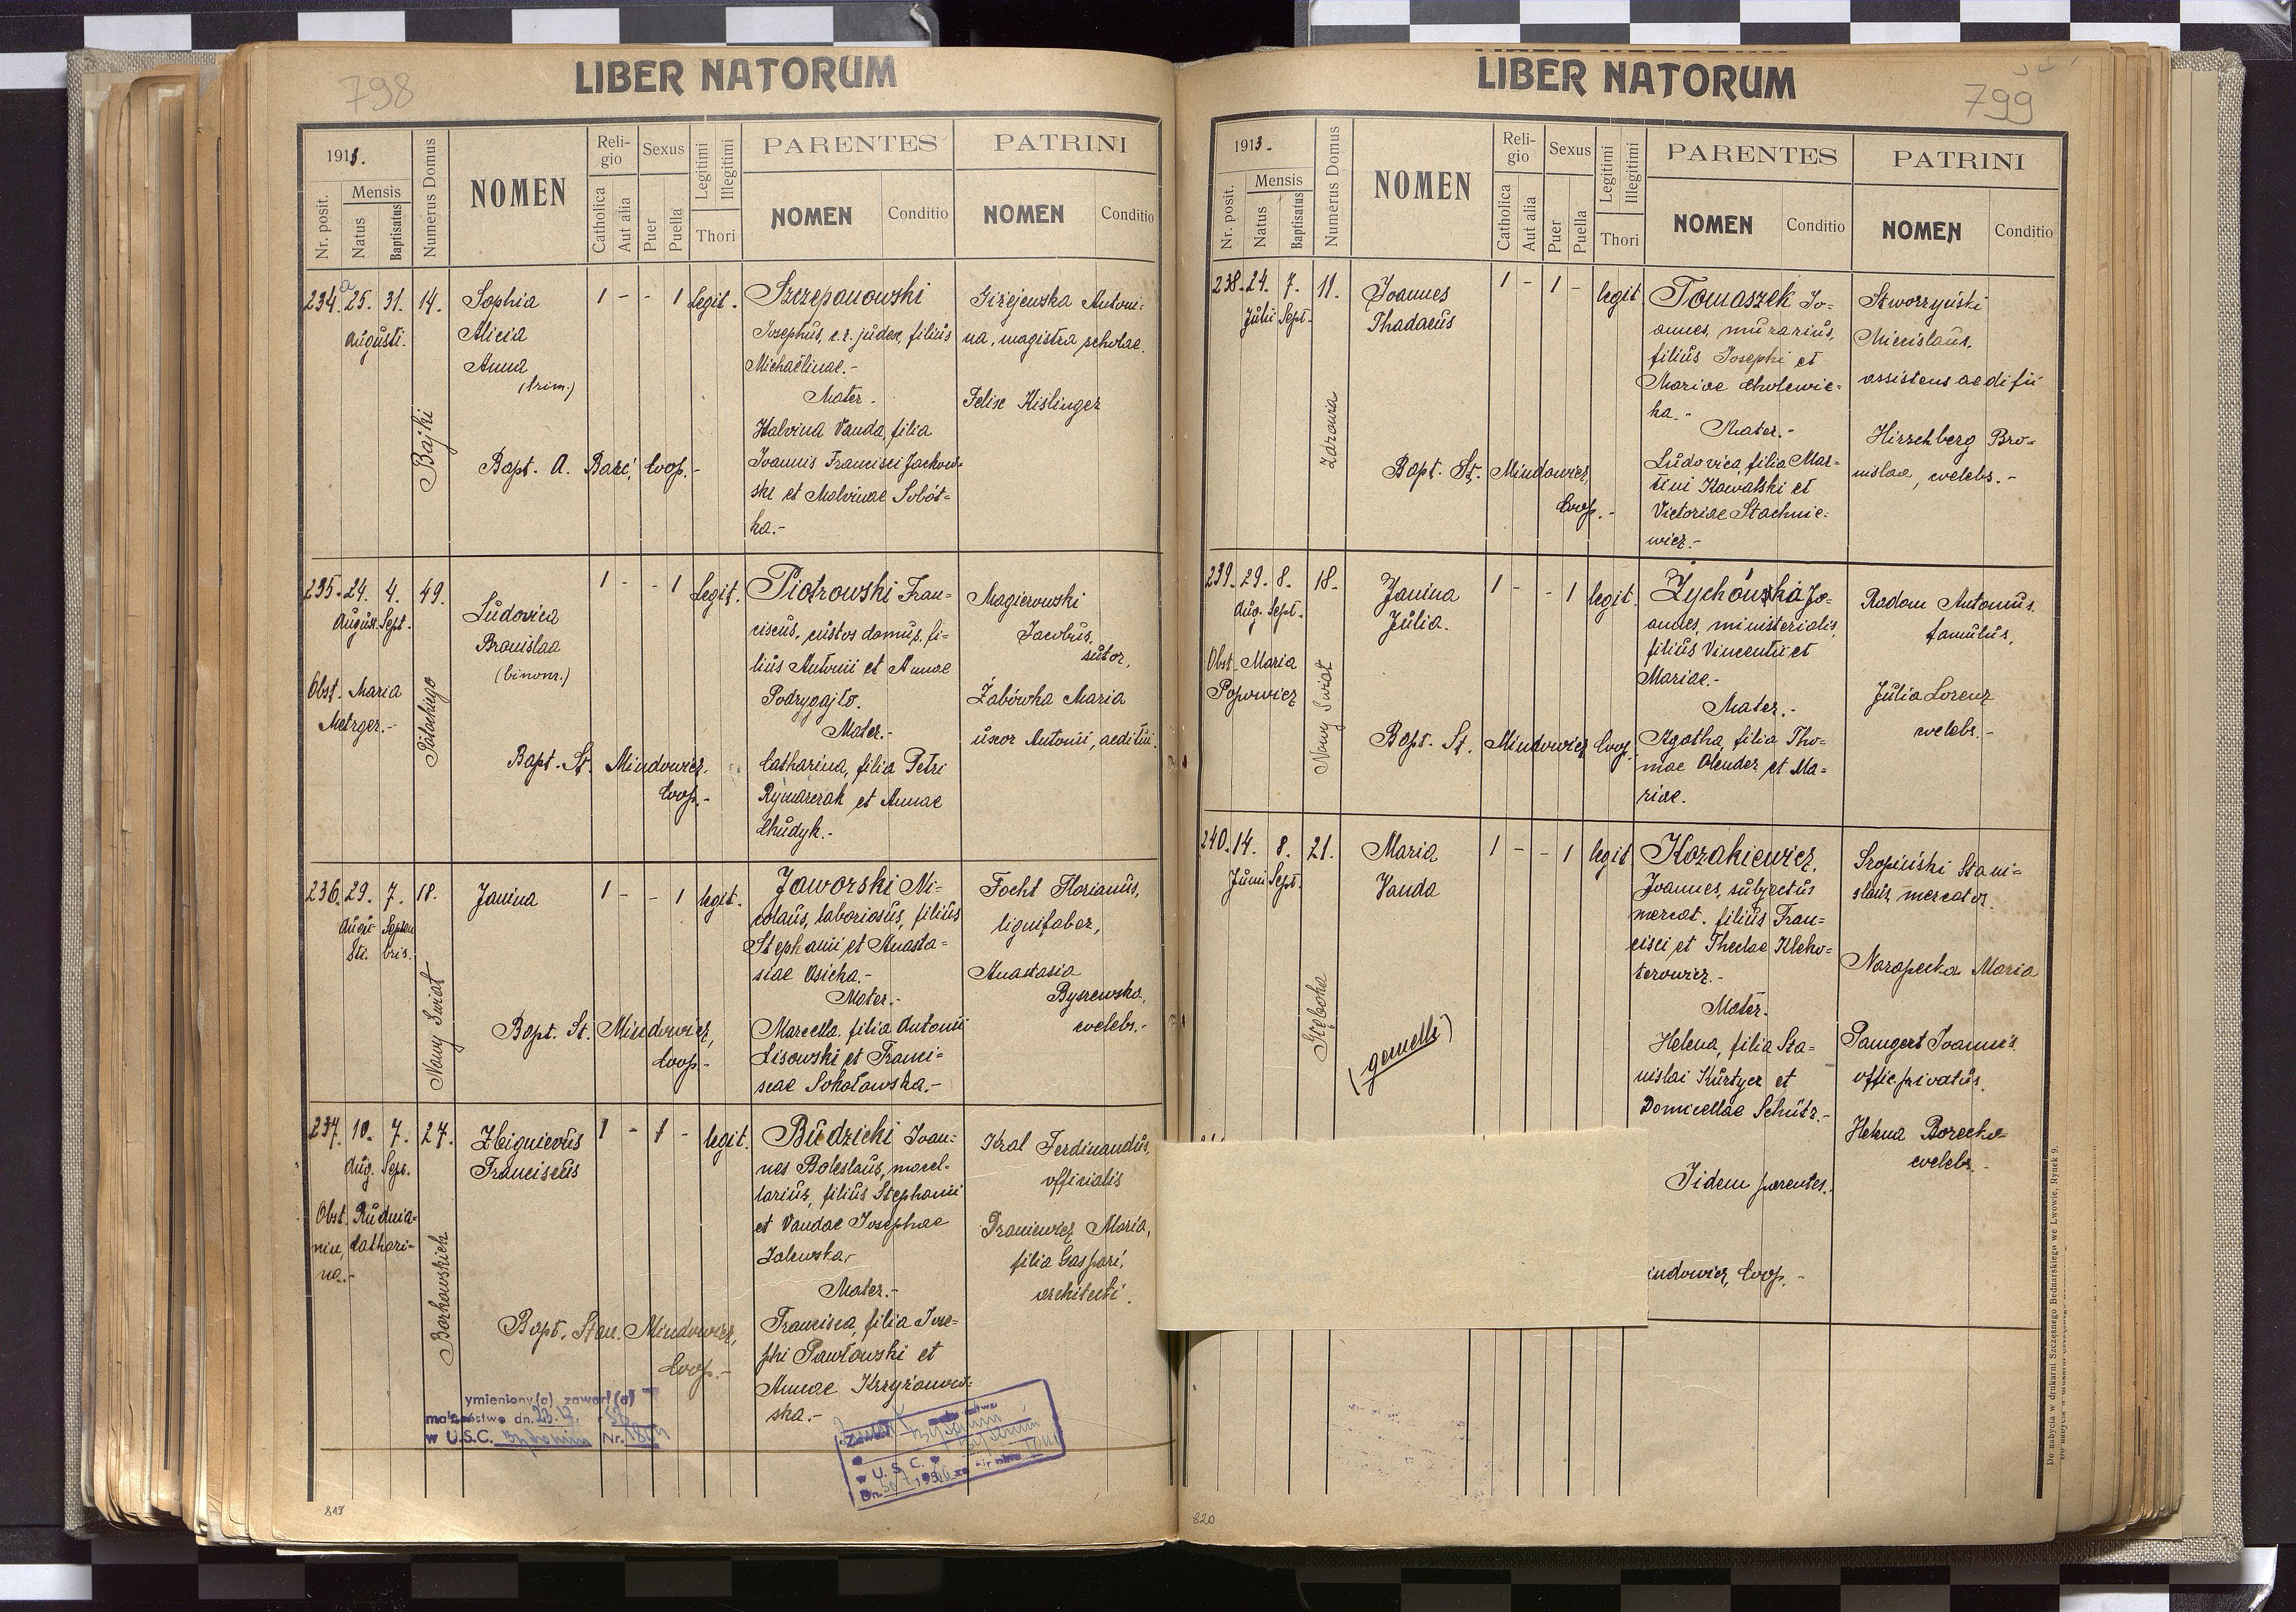 798
LIBER NATORUM
1913.
Nr. posit.
Mensis
Natus
Baptisatus
Numerus Domus
NOMEN
Religio
Catholica
Aut alia
Sexus
Puer
Puella
Legitimi
Illegitimi
Thori
PARENTES
NOMEN
Conditio
PATRINI
NOMEN
Conditio
234. 25. 31. 14.
a
Augusti.
Bajki
Sophia
Alicia
Anna
(trim.)
1 - - 1 legit.
Bapt. A. Barć, Coop.-
Szczepanowski
Josephus, c.r. judex, filius
Michaëlinae.-
Mater.-
Halvina Vanda, filia
Joannis Francisci Jackow-
ski et Malvinae Sobót-
ka.-
Giżejewska Antoni-
na, magistra scholae.
Felix Kislinger
235. 24. 4. 49.
August. Sept.
Obst. Maria
Metzger.-
Potockiego
Ludovica
Bronislaa
(binom.)
1 - - 1 legit.
Bapt. St. Mindowicz,
Coop.-
Piotrowski Fran-
ciscus, custos domus, fi-
lius Antonii et Annae
Podrygajło.
Mater.-
Catharina, filia Petri
Rymarczak et Annae
Chudyk.-
Magierowski
Jacobus,
sutor,
Żabówka Maria
uxor Antonii, aeditui.
236. 29. 7. 18.
Augu- Septem
sti. bris.
Nowy Świat
Janina
1 - - 1 legit.
Bapt. St. Mindowicz,
Coop.-
Jaworski Ni-
colaus, laboriosus, filius
Stephanii et Anasta-
siae Osicka.-
Mater.-
Marcella, filia Antonii
Lisowski et Franci-
scae Sokołowska.-
Focht Florianus,
lignifaber,
Anastasia
Byszewska,
coelebs.-
237. 10. 7. 27.
Aug. Sept.
Obst. Rudnia-
nin, Cathari-
na.-
Borkowskich
Zbignievus
Franciscus
1 - 1 - legit.
Bapt. Stan. Mindowicz,
Coop.-
Budzicki Joan-
nes Boleslaus, macel-
larius, filius Stephanii
et Vandae Josephae
Zalewska,-
Mater.-
Francisca, filia Jose-
phi Pawłowski et
Annae Krzyżanow-
ska.-
Kral Ferdinandus,
officialis
Braniewicz Maria,
filia Gaspari,
architecti.
ymieniony(a) zawarł(a)
małżeństwo dn.
w U.S.C. Nr.
w U.S.C. w
Dn.
819
799
LIBER NATORUM
1913.
Nr. posit.
Mensis
Natus
Baptisatus
Numerus Domus
NOMEN
Religio
Catholica
Aut alia
Sexus
Puer
Puella
Legitimi
Illegitimi
Thori
PARENTES
NOMEN
Conditio
PATRINI
NOMEN
Conditio
238. 24. 7. 11.
Julii Sept.
Zdrowia
Joannes
Thadaeus
1 - 1 - legit
Bapt. St. Mindowicz,
Coop.-
Tomaszek Jo-
annes, murarius,
filius Josephi et
Mariae Cholewic-
ka.-
Mater.-
Ludovica, filia Mar-
tini Kowalski et
Victoriae Stachnie-
wicz.-
Stworzyński
Miecislaus,
assistens aedifii
Hirschberg Bro-
nislaa, coelebs.-
239. 29. 8. 18.
Aug. Sept.
Obst. Maria
Popowicz
Nowy Świat
Janina
Julia.
1 - - 1 legit.
Bapt. St. Mindowicz Coop.
Zychówka Jo-
annes, ministerialis,
filius Vincentii et
Mariae.-
Mater.-
Agatha, filia Tho-
mae Olender et Ma-
riae.
Radom Antonius.
famulus,
Julia Lorenz
coelebs.-
240. 14. 8. 21.
Junii Sept.
Głęboka
Maria
Vanda
(gemelli)
1 - - 1 legit
Kozakiewicz,
Joannes, subjectus
mercat. filius Fran-
cisci et Theclae Kleko-
terowicz.-
Mater.
Helena, filia Sta-
nislai Kurtycz et
Domicellae Schütz.-
Sropiński Stani-
slaus, mercator.
Narapecka Maria
Paingert Joannes
offic. privatus,
Helena Borecka
coelebs.-
Iidem parentes.
indowicz, Coop.-
De nabycia w drukarni Szczęsnego Bednarskiego we Lwowie, Rynek 9.
820